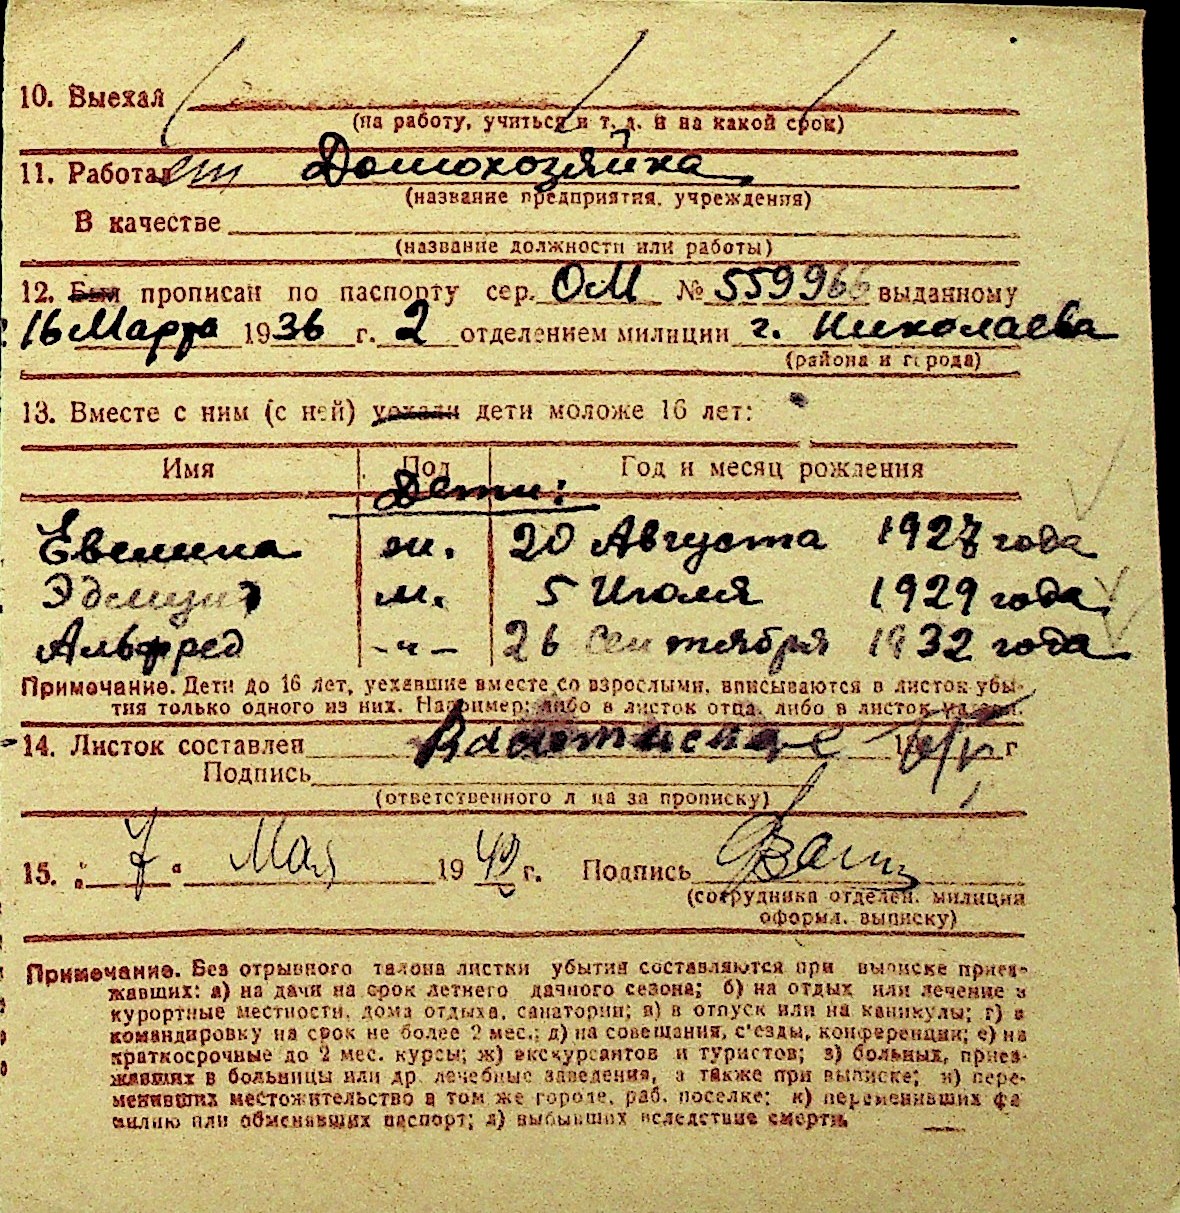 10. Выехал
(на работу, учиться и т. д. и на какой срок)
11. Работает Домохозяйка
(название предприятия, учреждения)
В качестве
(название должности или работы)
12. Был прописан по паспорту сер. ОМ № 559966 выданному
16 Марта 1936 г. 2 отделением милиции г. Николаева
(района и города)
13. Вместе с ним (с ней) уехали дети моложе 16 лет:
Имя Пол Год и месяц рождения
Дети:
Евелина ж. 20 Августа 1927 года
Эдмунд м. 5 Июля 1929 года
Альфред -"- 26 Сентября 1932 года
Примечание. Дети до 16 лет, уехавшие вместе со взрослыми, вписываются в листок убы-
тия только одного из них. Например: либо в листок отца, либо в листок матери.
14. Листок составлен 19 г
Подпись
(ответственного лица за прописку)
15. „ 7 “ Мая 19 г. Подпись
(сотрудника отделен. милиции
оформл. выписку)
Примечание. Без отрывного талона листки убытия составляются при выписке приез-
жавших: а) на дачи на срок летнего дачного сезона; б) на отдых или лечение в
курортные местности, дома отдыха, санатории; в) в отпуск или на каникулы; г) в
командировку на срок не более 2 мес.; д) на совещания, с'езды, конференции; е) на
краткосрочные до 2 мес. курсы; ж) экскурсантов и туристов; з) больных, приез-
жавших в больницы или др. лечебные заведения, а также при выписке; и) пере-
менивших местожительство в том же городе, раб. поселке; к) переменивших фа
милию или обменявших паспорт; л) выбывших вследствие смерти.